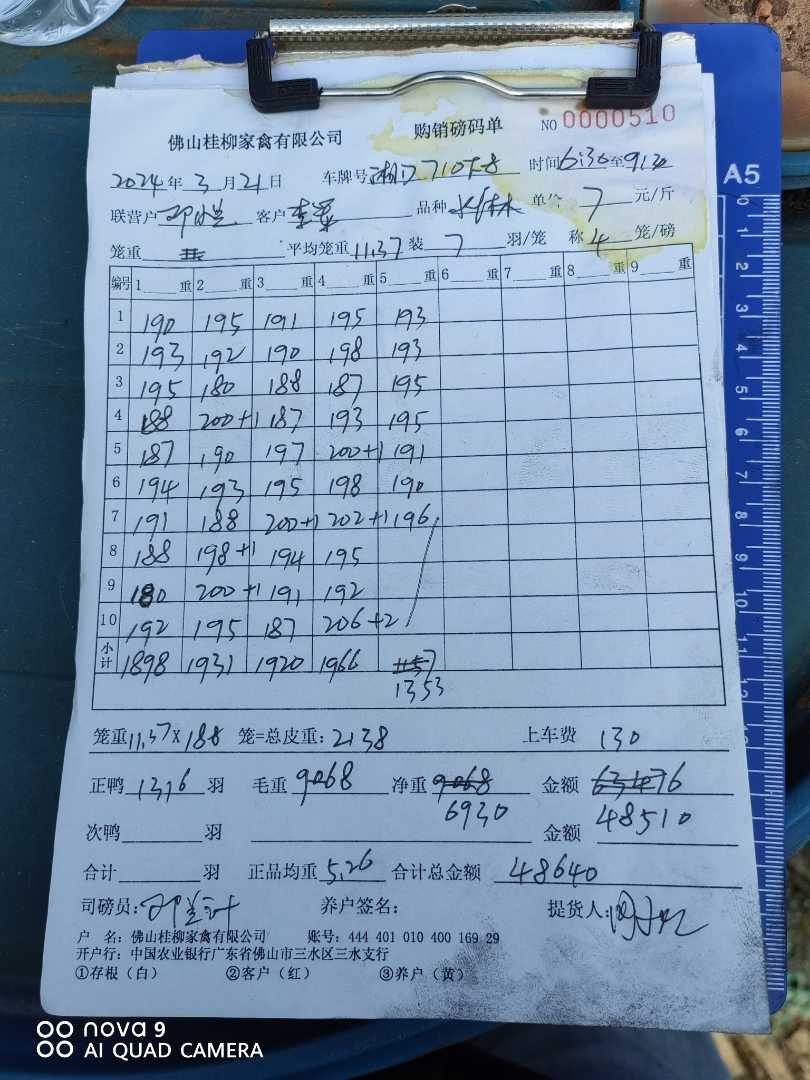 佛山桂柳家禽有限公司 购销磅码单 NO 0000510
2024年3月21日 车牌号 时间6:30至9:30
联营户 客户 品种 单价 7 元/斤
笼重 平均笼重 11.37 装 7 羽/笼 称 4 笼/磅
编号 1 重 2 重 3 重 4 重 5 重 6 重 7 重 8 重 9 重
1 190 195 191 195 193
2 193 192 190 198 193
3 195 180 188 187 195
4 188 200+1 187 193 195
5 187 190 197 200+1 191
6 194 193 195 198 190
7 191 188 200+1 202+1 196
8 188 198+1 194 195
9 180 200+1 191 192
10 192 195 187 206+2
小计 1898 1931 1920 1966
1353
笼重11.37×188 笼=总皮重：2138 上车费 130
正鸭 1316 羽 毛重 9068 净重 9068 金额 63476
6930 48510
次鸭 羽 金额
合计 羽 正品均重 5.26 合计总金额 48640
司磅员： 养户签名： 提货人：
户 名：佛山桂柳家禽有限公司 账号：444 401 010 400 169 29
开户行：中国农业银行广东省佛山市三水区三水支行
①存根（白） ②客户（红） ③养户（黄）
A5
0 1 2 3 4 5 6 7 8 9 10 11 12
nova 9
AI QUAD CAMERA